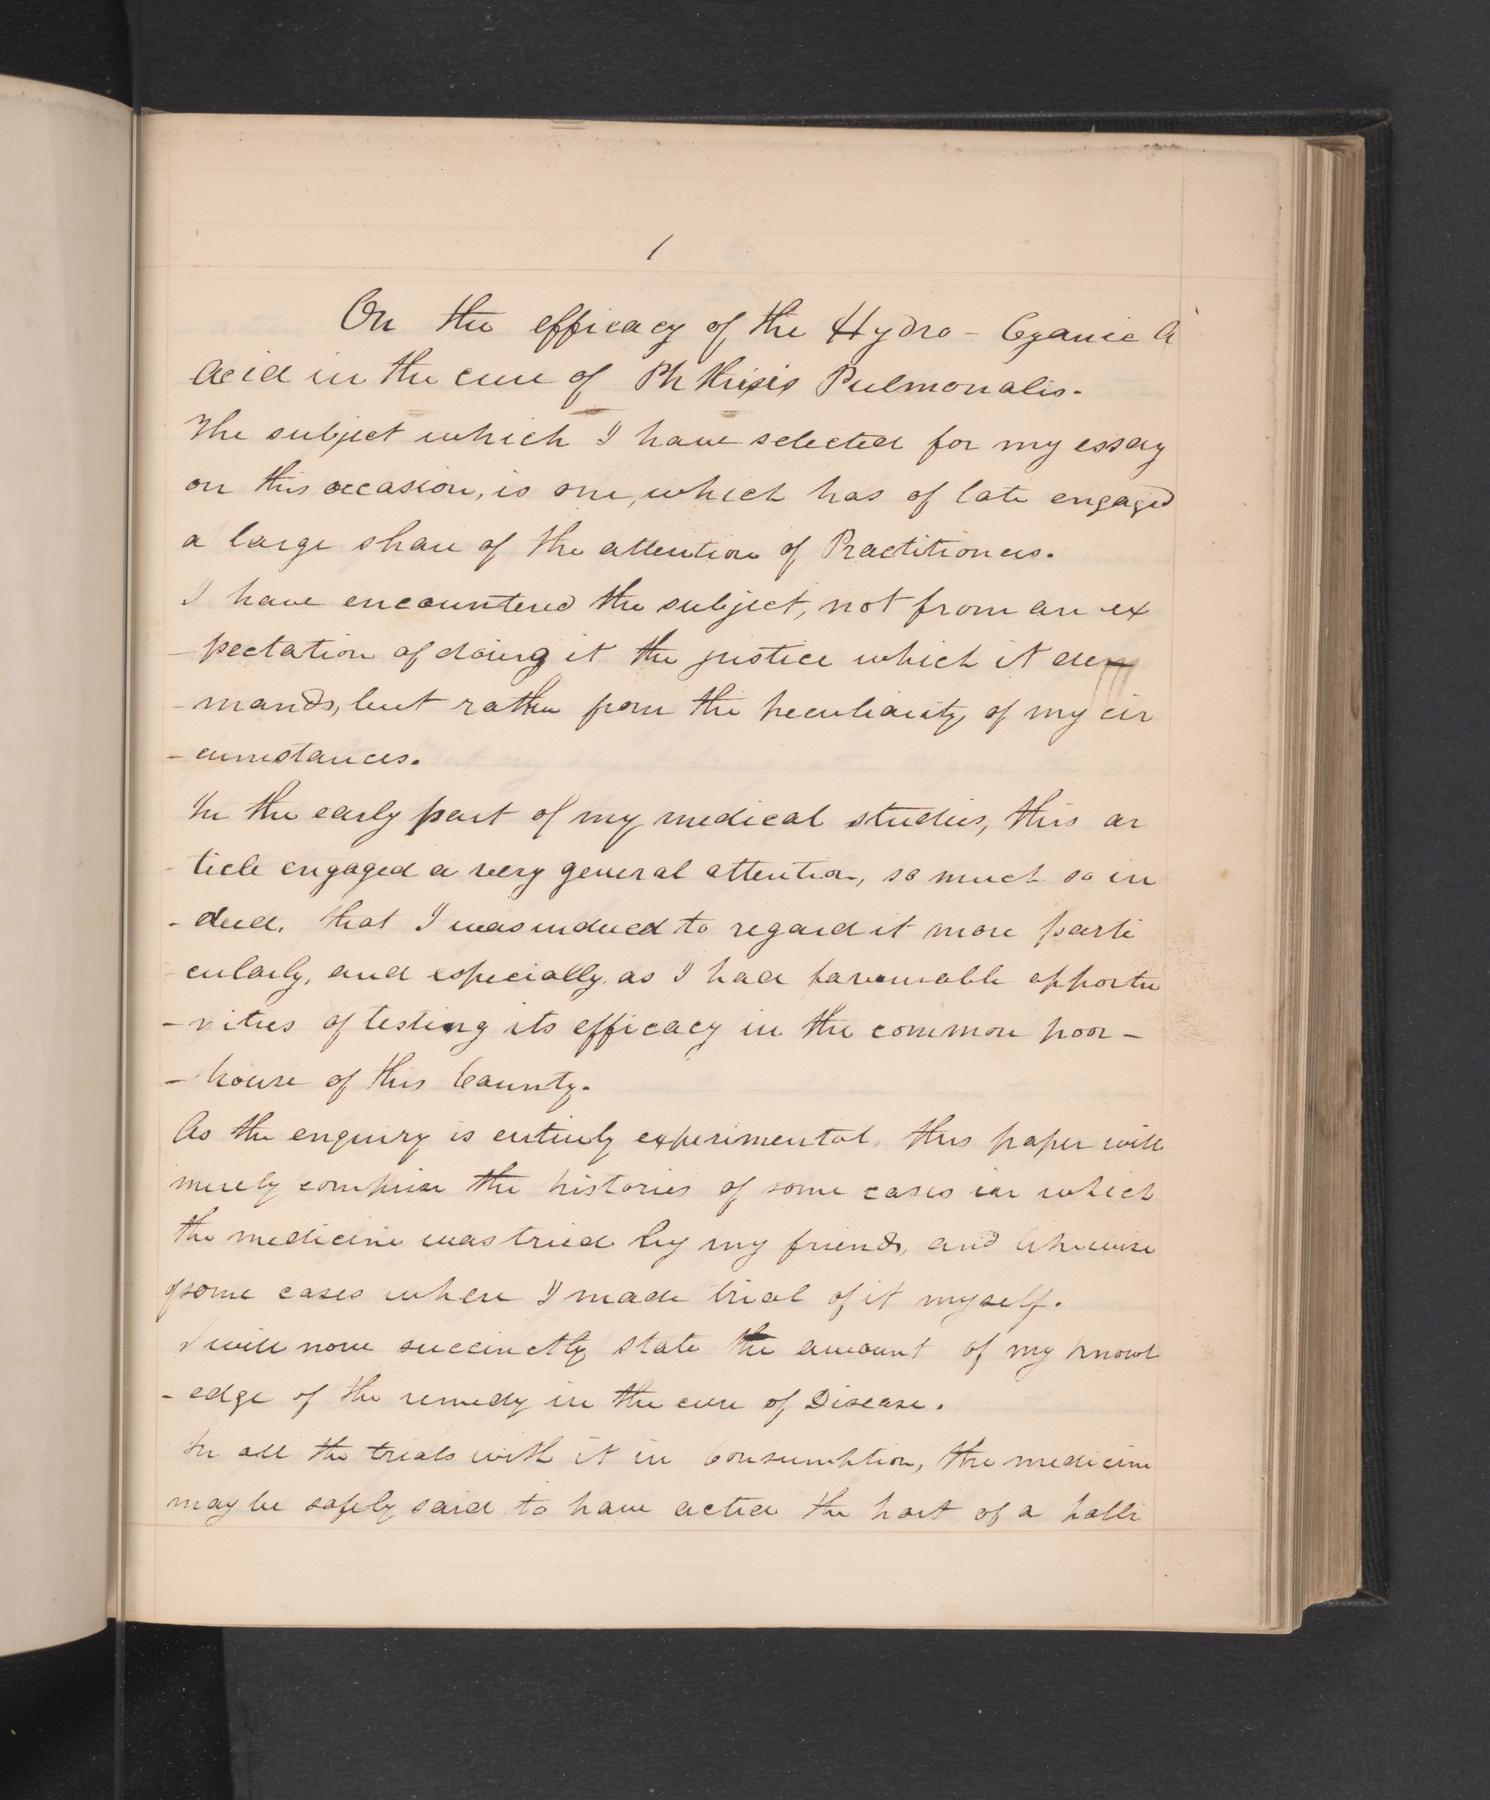 1
On the efficacy of the Hydro - Cyanic A
Acid in the cure of Phthisis Pulmonalis.
The subject which I have selected for my essay
on this occasion, is one, which has of late engaged
a large share of the attention of Practitioners.
I have encountered the subject, not from an ex
-pectation of doing it the justice which it de
-mands, but rather from the peculiarity of my cir
-cumstances.
In the early part of my medical studies, this ar
-ticle engaged a very general attention, so much so in
-deed, that I was induced to regard it more parti
cularly, and especially, as I had favourable opportu
-nities of testing its efficacy in the common poor-
-house of this County.
As the enquiry is entirely experimental, this paper will
merely comprise the histories of some cases in which
the medicine was tried by my friends, and likewise
of some cases where I made trial of it myself.
I will now succinctly state the amount of my knowl
-edge of the remedy in the cure of Disease.
In all the trials with it in Consumption, the medicine
may be safely said to have acted the part of a palli